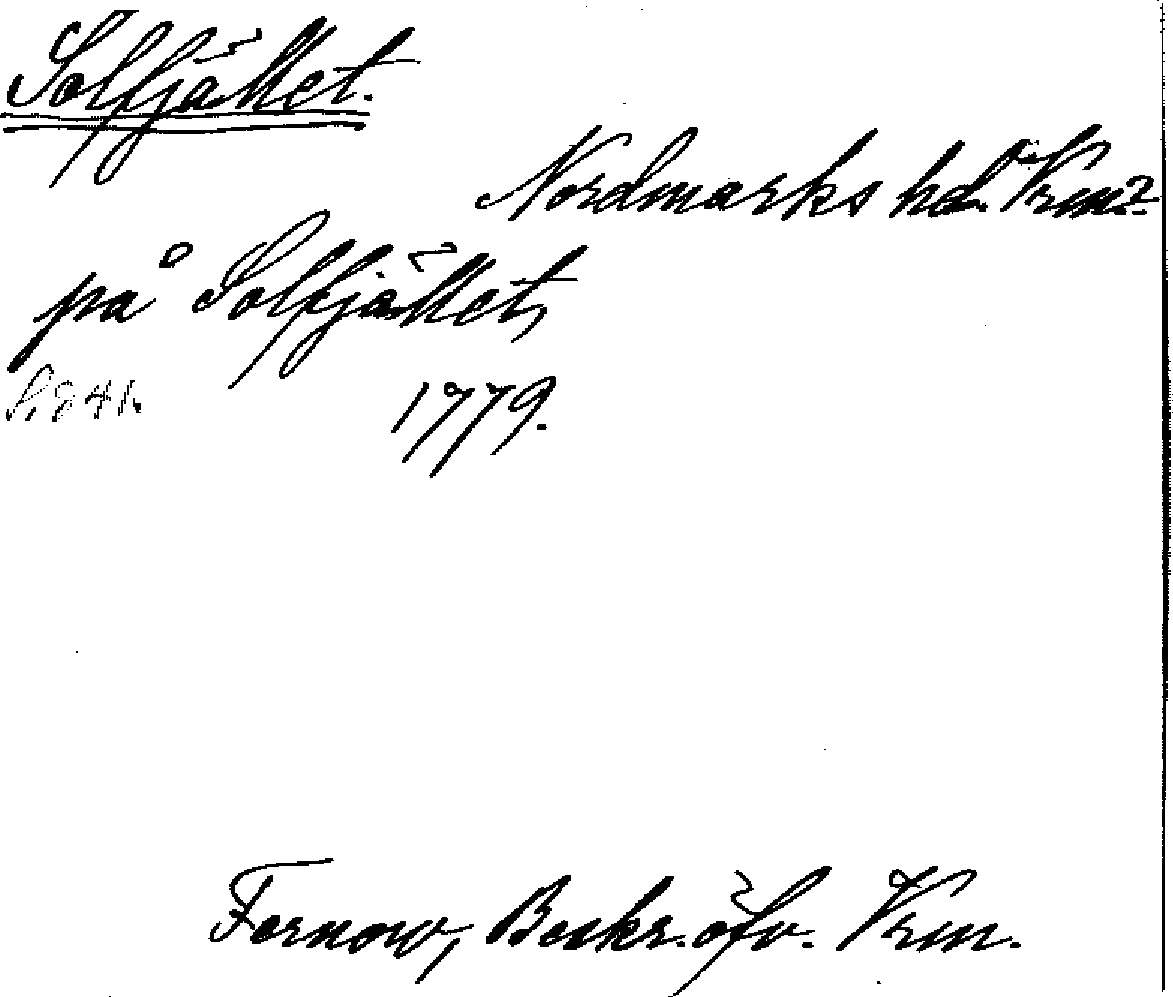 Solfjället.
Nordmarks hd. Vrm?
på Solfjället,
S. 841.
1779.
Fernow, Beskr. öfv. Vrm.